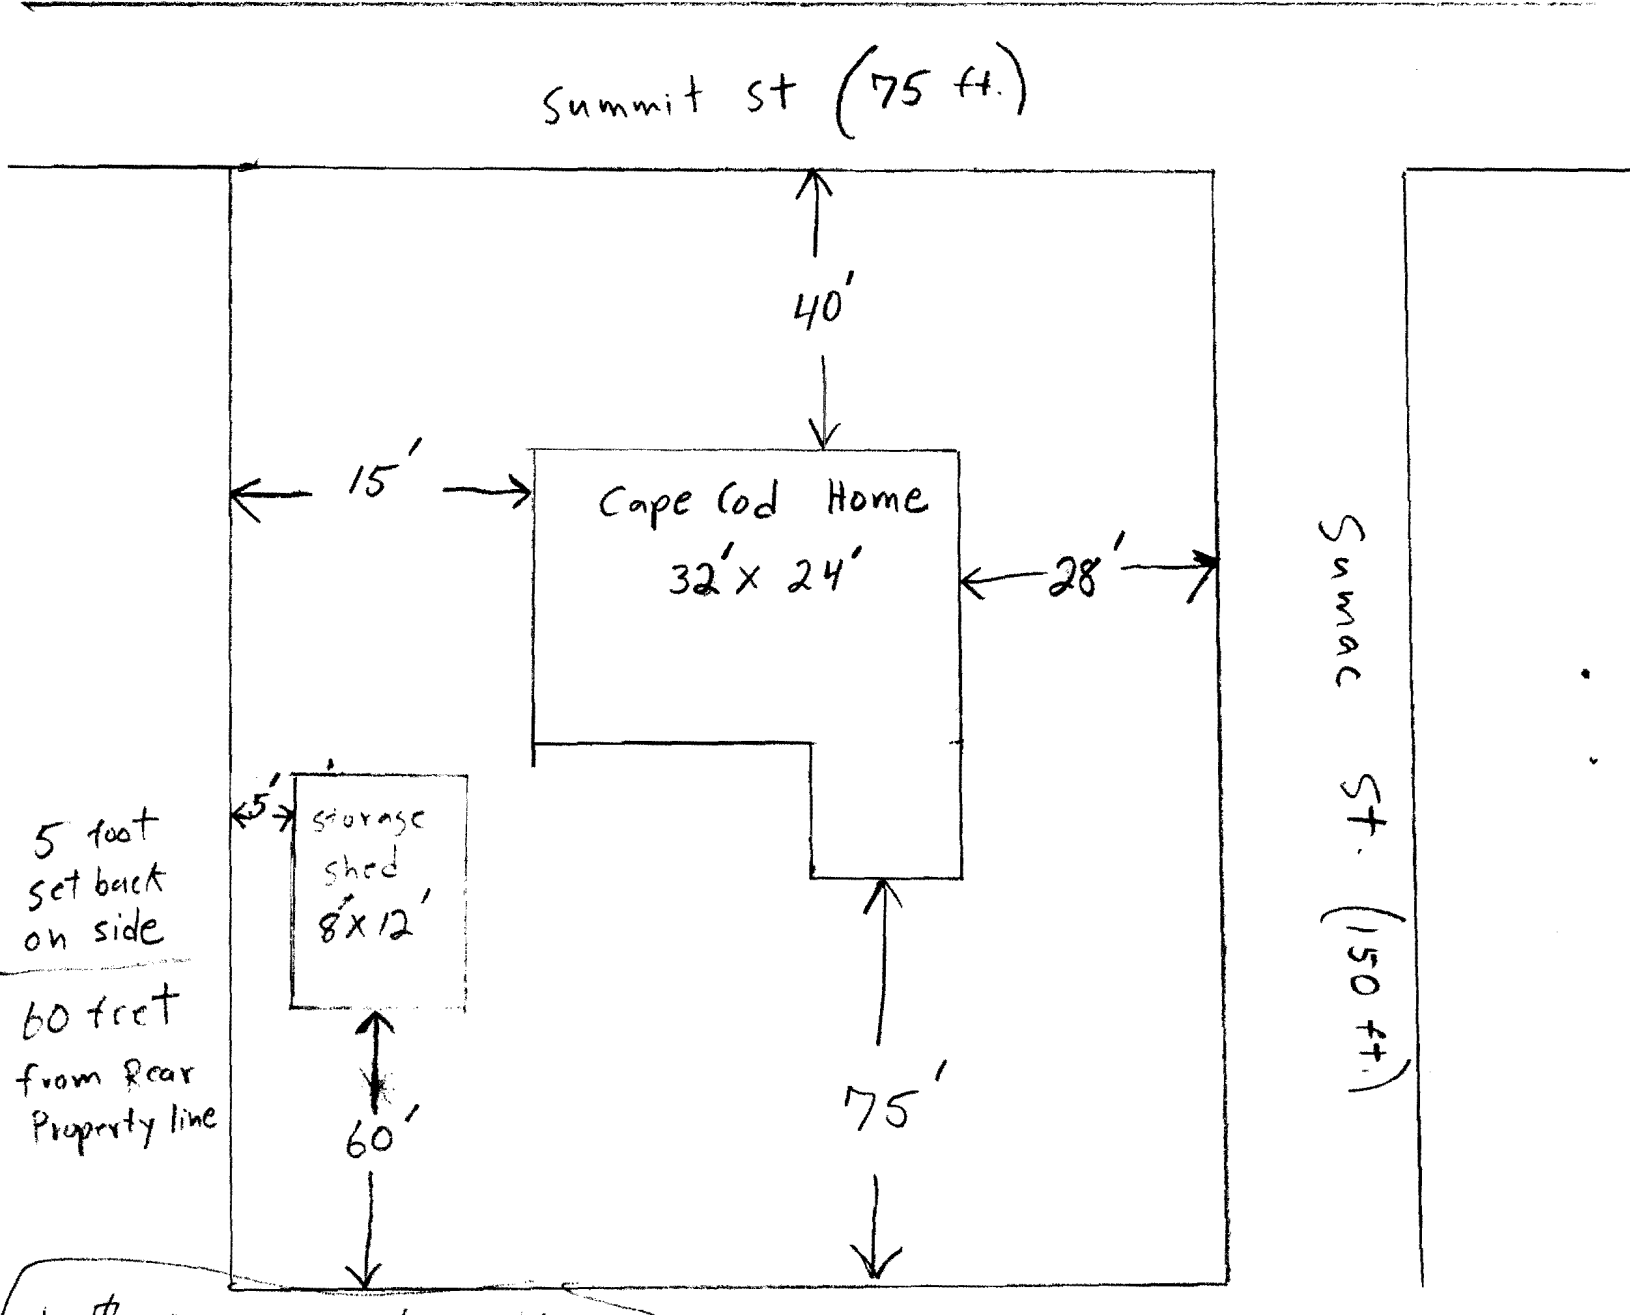 Summit St (75 ft.)
40'
15'
Cape Cod Home
32' x 24'
28'
Sumac St. (150 ft.)
5'
storage
shed
8' x 12'
5 foot
set back
on side
60 feet
from Rear
Property line
60'
75'